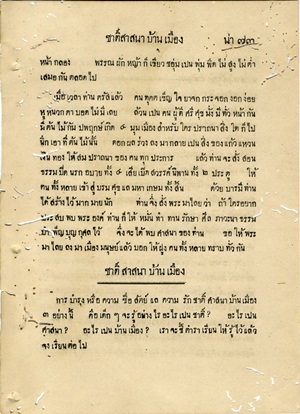 ชาติสาสนาบ้านเมือง น่า ๗๓
หน้า กลอง พรรณ ผัก หญ้า ก็ เขียว ชอุ่ม เปน พุ่ม พิศ ไม่ สูง ไม่ ต่ำ
เสมอ กัน ตลอด ไป
เมื่อ เวลา ท่าน ตรัส แล้ว คน ทุกคน เข็ญ ใจ ยาจก กระจอก งอก ง่อย
หู หนวก ตา บอด ไม่ มี เลย ล้วน เปน คน ผู้ ดี ศรี ศุข มั่ง มี ทั่ว หน้า กัน
มี ต้น ไม้ กัม ปพฤกษ์ เกิด ๔ มุม เมือง สำหรับ ใคร ปราถนา สิ่ง ใด ก็ ไป
นึก เอา ที่ ต้น ไม้ นั้น ตกลง มา กลาย เปน สิ่ง ของ แก้ว แหวน
เงิน ทอง ได้ สม ปราถนา ของ คน ทุก ประการ แล้ว ท่าน จะ สั่ง สอน
ธรรม ปิด นรก อบาย ทั้ง ๔ เสีย เปิด สวรรค์ นิพาน ทั้ง ๒ ประตู ให้
คน ทั้ง หลาย เข้า สู่ บรม ศุข แล มหา เกษม ทั้ง สิ้น ด้วย บารมี ท่าน
ได้ สร้าง ไว้ มาก มาย นัก ท่าน จึ่ง สั่ง พระ มาไลย ว่า ถ้า ใคร อยาก
ประ สบ พบ พระ องค์ ท่าน ก็ ให้ หมั่น ทำ ทาน รักษา ศีล ภาวนา ธรรม
บำ เพ็ญ บุญ กุศล ไว้ จึ่ง จะ ได้ พบ สาสนา ของ ท่าน ขอ ให้ พระ
มา ไลย ลง มา เมือง มนุษย์ แล้ว บอก ให้ ฝูง คน ทั้ง หลาย ทราบ ทั่ว กัน
ชาติ สาสนา บ้านเมือง
การ บำรุง หรือ ความ ซื่อ สัตย์ แล ความ รัก ชาติ สาสนา บ้าน เมือง
๓ อย่าง นี้ คือ เด็ก ๆ จะ รู้ อย่าง ไร อะ ไร เปน ชาติ ? อะ ไร เปน
สาสนา ? อะ ไร เปน บ้าน เมือง ? เรา จะ ชี้ ตำรา เรียน ให้ รู้ ไว้ แล้ว
จง เรียน ต่อ ไป